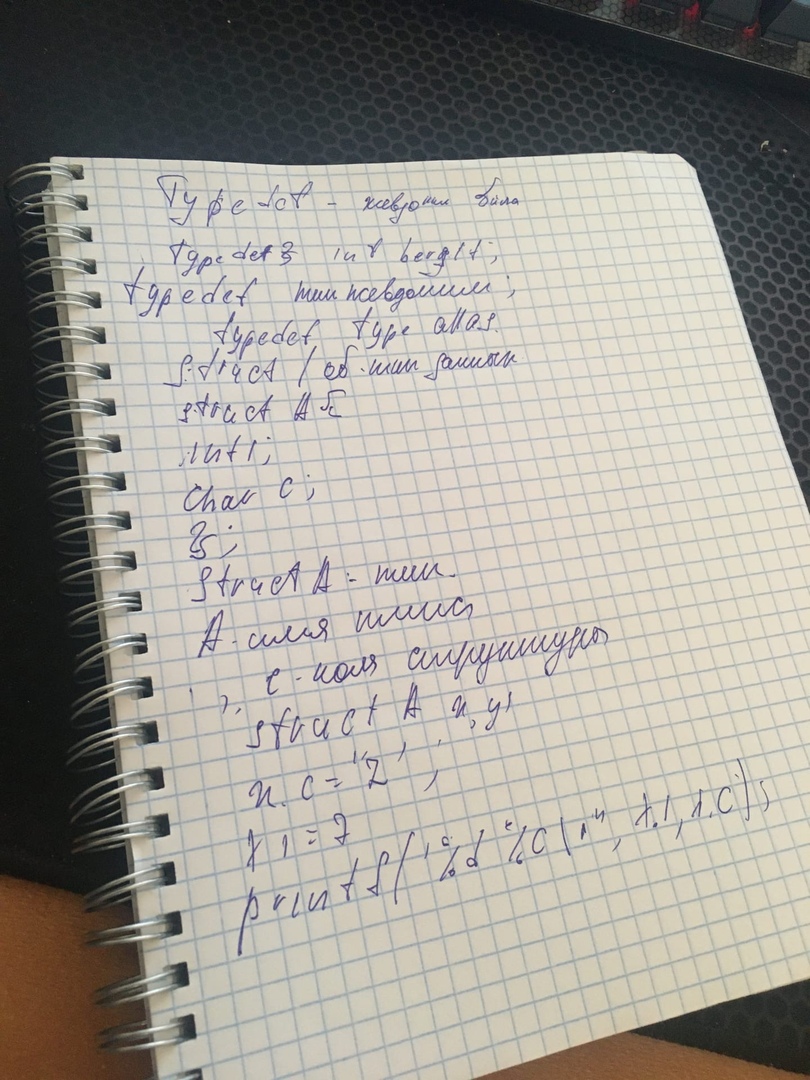 Typedef - псевдоним
typedef int
typedef тип псевдоним;
typedef type alias.
struct / об. тип данных
struct A {
int i;
char c;
};
struct A - тип.
A - имя типа
i, c - поля структуры
struct A x, y;
x. c = 'Z';
x i = 7
printf("%d %c\n", x.i, x.c);